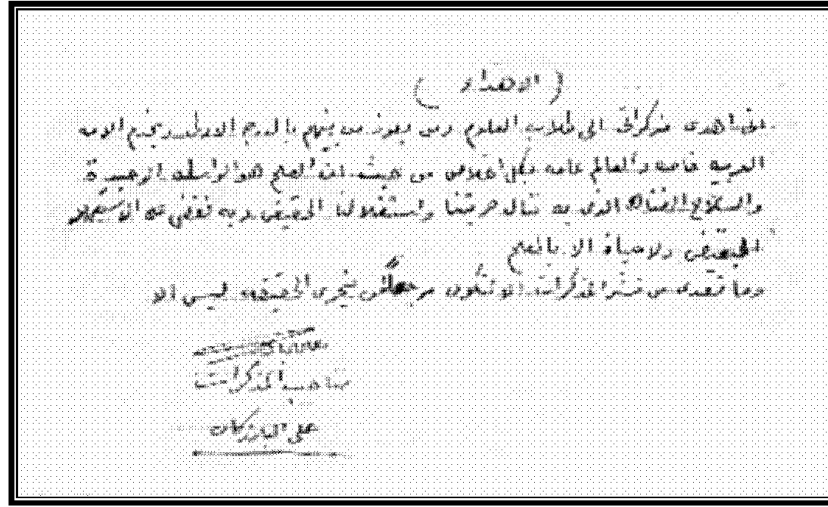 ( الاهداء )
اني اهدى مذكراتي الى طلاب العلوم ومن يفوز من بينهم بالدرجة الاولى ويخدم الامه
العربيه خاصه والعالم عامه بكل اخلاص من حيث ان العلم هو الرابطه الوحيدة
والسلاح الفتاك الذي به ننال حريتنا واستقلالنا الحقيقي وبه نقضي على الاستعمار
البغيض ولا حياة الا بالعلم
وما قصدي من نشر المذكرات الا لتكون مرجعاً لمن يتحرى الحقيقه ليس الا
صاحب المذكرات
علي البازركان